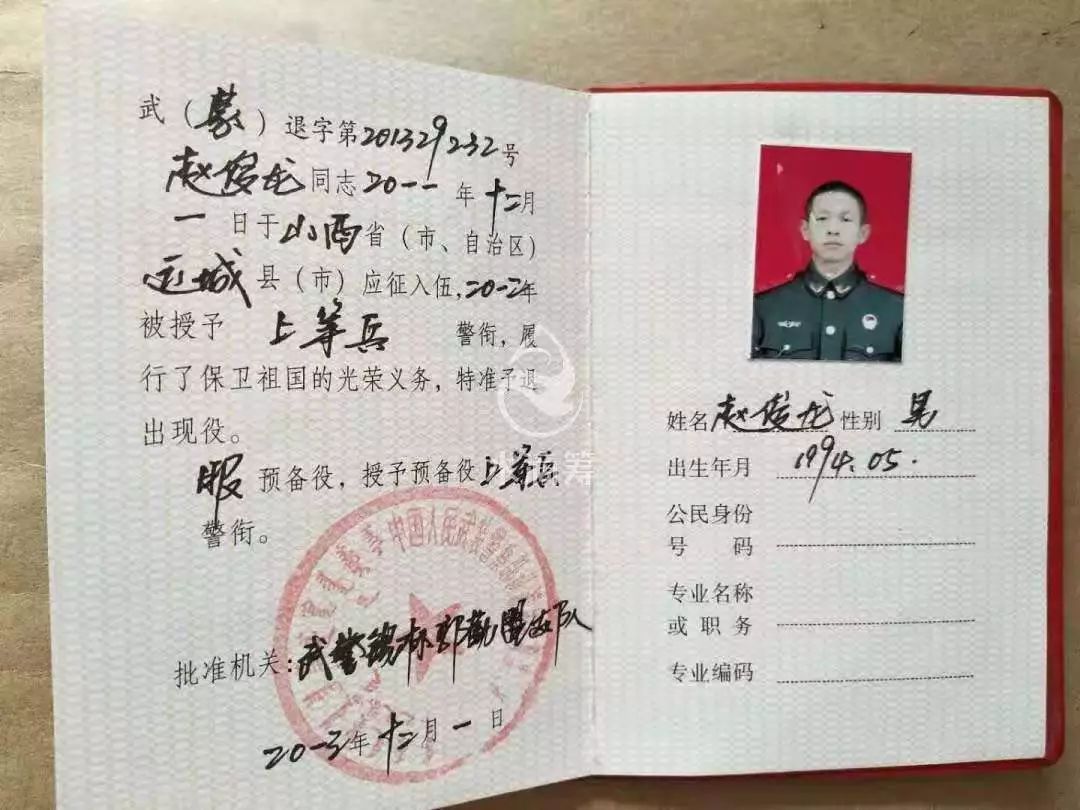 武（蒙）退字第201329232号
赵俊龙同志二〇一一年十二月
一日于山西省（市、自治区）
运城县（市）应征入伍,二〇一二年
被授予 上等兵 警衔，履
行了保卫祖国的光荣义务，特准予退
出现役。
服预备役，授予预备役上等兵
警衔。
中国人民武装警察部队
批准机关：武警锡林郭勒盟支队
二〇一三年十二月一日
姓名 赵俊龙 性别 男
出生年月 1994.05.
公民身份
号码
专业名称
或职务
专业编码
筹